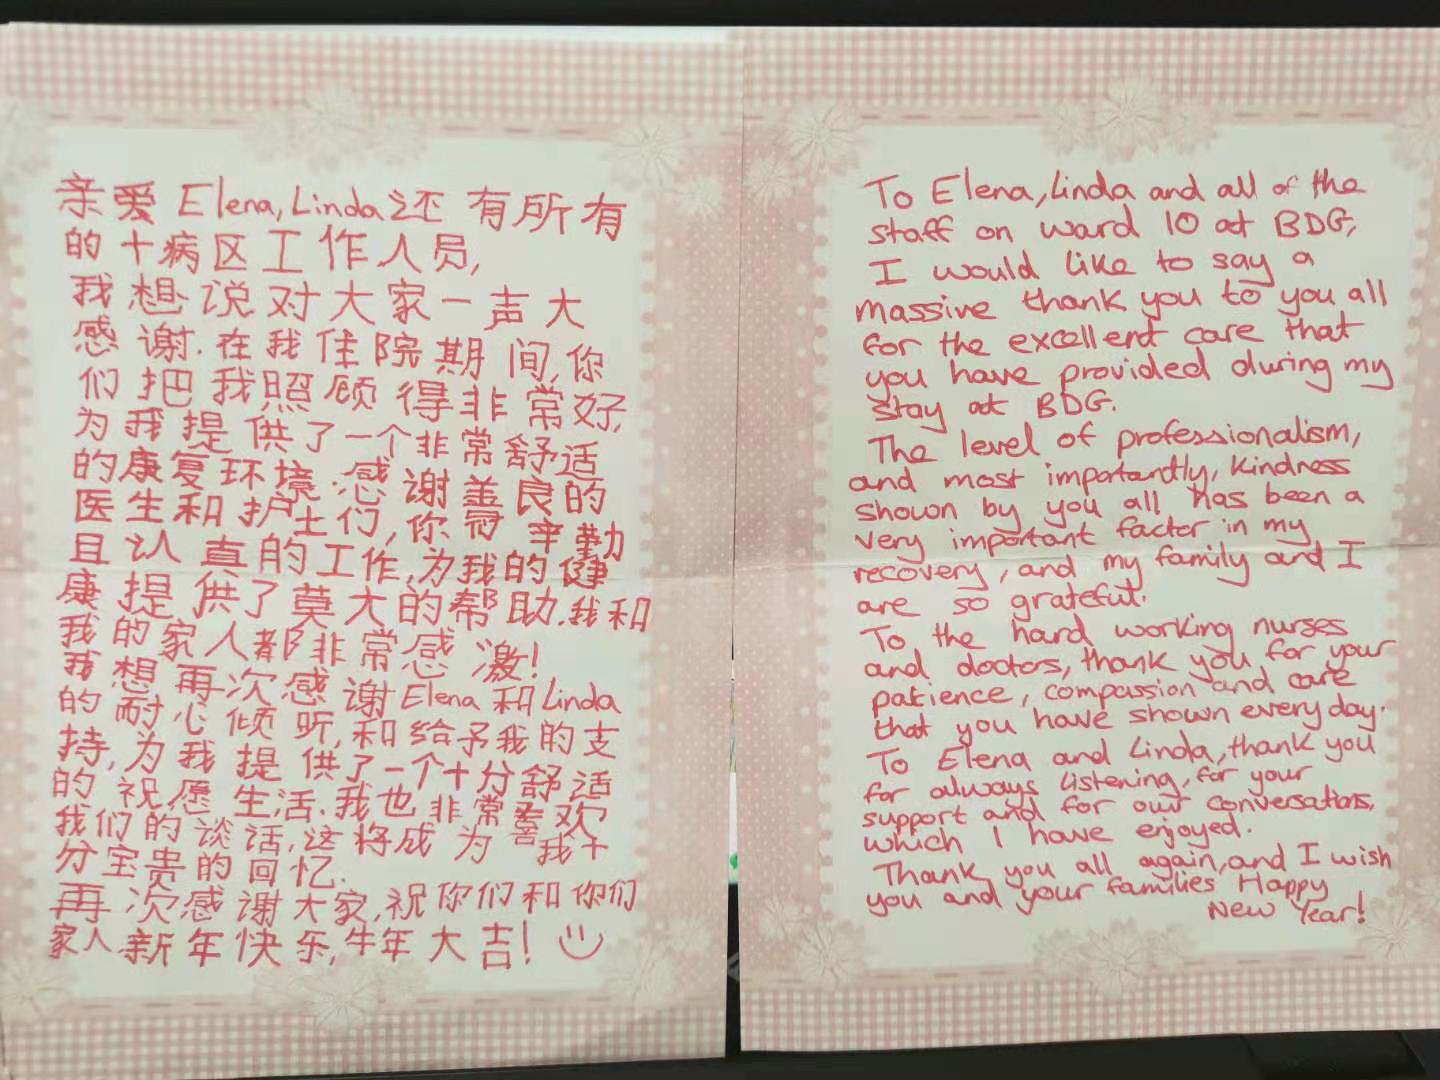 亲爱 Elena, Linda 还有所有
的十病区工作人员,
我想说对大家一声大
感谢. 在我住院期间, 你
们把我照顾得非常好,
为我提供了一个非常舒适
的康复环境. 感谢善良的
医生和护士们, 你 辛勤
且认真的工作, 为我的健
康提供了莫大的帮助. 我和
我的家人都非常感激!
我想再次感谢 Elena 和 Linda
的耐心倾听, 和给予我的支
持, 为我提供了一个十分舒适
的祝愿生活. 我也非常喜欢
我们的谈话, 这将成为我十
分宝贵的回忆.
再次感谢大家, 祝你们和你们
家人新年快乐, 牛年大吉!
To Elena, Linda and all of the
staff on ward 10 at BDG,
I would like to say a
massive thank you to you all
for the excellent care that
you have provided during my
stay at BDG.
The level of professionalism,
and most importantly, kindness
shown by you all has been a
very important factor in my
recovery, and my family and I
are so grateful.
To the hard working nurses
and doctors, thank you for your
patience, compassion and care
that you have shown everyday.
To Elena and Linda, thank you
for always listening, for your
support and for our conversations,
which I have enjoyed.
Thank you all again, and I wish
you and your families Happy
New Year!